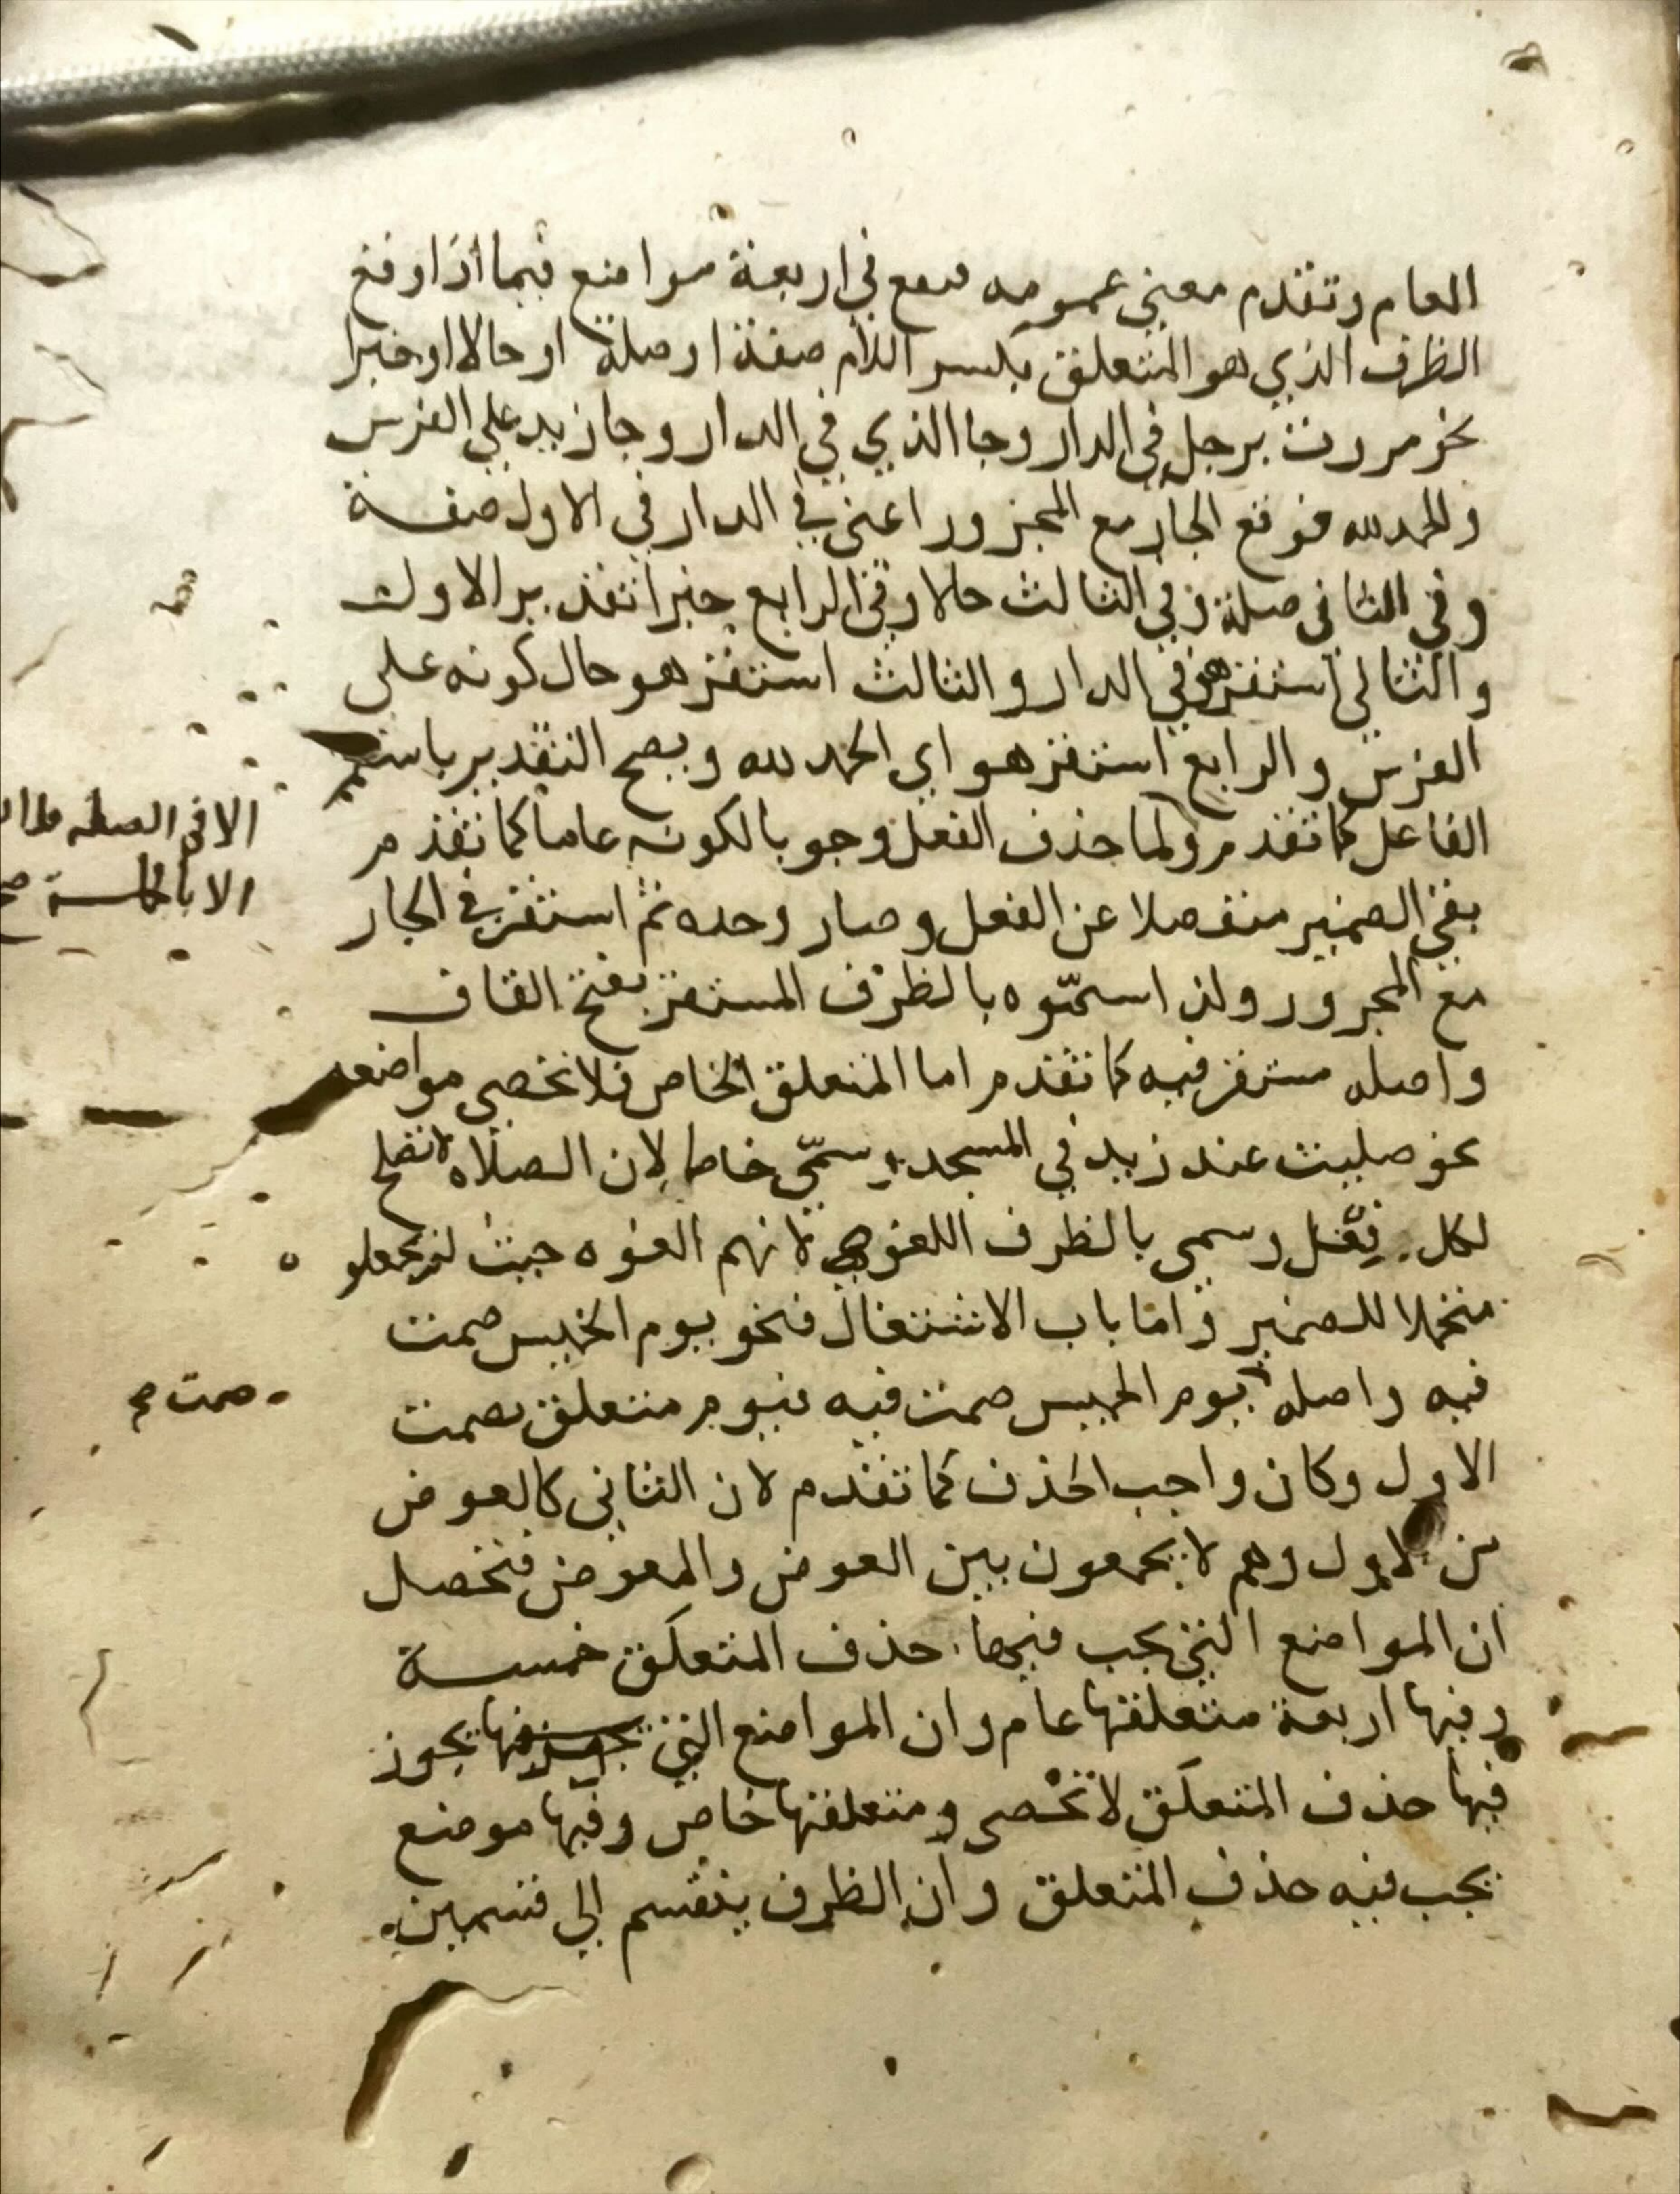 العام وتقدم معنى عمومه فيقع في اربعة مواضع فيما اذا وقع
الظرف الذي هو المتعلق بكسر اللام صفة او صلة او حالا او خبرا
نحو مررت برجل في الدار وجا الذي في الدار وجا زيد على الفرس
والحمد لله فوقع الجار مع المجرور اعنى في الدار في الاول صفة
وفي الثاني صلة وفي الثالث حالا وفي الرابع خبرا تقدير الاول
والثاني استقر هو في الدار والثالث استقر هو حال كونه على
الفرس والرابع استقر هو اي الحمد لله ويصح التقدير باسم
الفاعل كما تقدم ولما حذف الفعل وجوبا لكونه عاما كما تقدم
بقي الضمير منفصلا عن الفعل وصار وحده ثم استقر في الجار
مع المجرور ولذا سمّوه بالظرف المستقر بفتح القاف
واصله مستقر فيه كما تقدم اما المتعلق الخاص فلا تحصى مواضعه
نحو صليت عند زيد في المسجد وسمّي خاصا لان الصلاة لا تصلح
لكل فعل وسمي بالظرف اللغو لانهم الغوه حيث لم يجعلوه
متحملا للضمير واما باب الاشتغال فنحو يوم الخميس صمت
فيه واصله يوم الخميس صمت فيه فيوم متعلق بصمت
الاول وكان واجب الحذف كما تقدم لان الثاني كالعوض
من الاول وهم لا يجمعون بين العوض والمعوض فتحصل
ان المواضع التي يجب فيها حذف المتعلق خمسة
وفيها اربعة متعلقها عام وان المواضع التي يجوز
فيها حذف المتعلق لا تحصى ومتعلقها خاص وفيها موضع
يجب فيه حذف المتعلق وان الظرف ينقسم الى قسمين
الا في الصلة
الا بالجملة صح
صمت صح